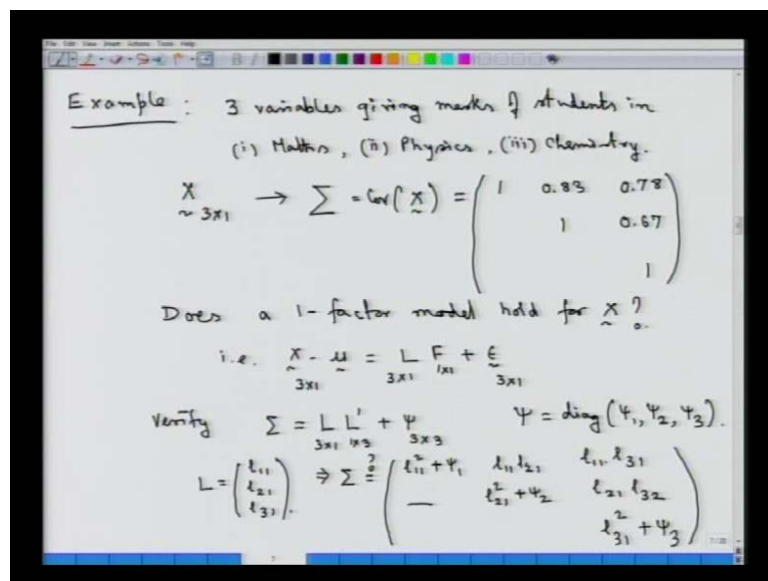 File Edit View Insert Actions Tools Help
Example : 3 variables giving marks of students in
(i) Maths, (ii) Physics, (iii) Chemistry.
X 3x1 → Σ = Cov(X) = ( 1 0.83 0.78
1 0.67
1 )
Does a 1-factor model hold for X ?
i.e. X - μ = L F + ε
3x1 3x1 1x1 3x1
Verify Σ = L L' + Ψ Ψ = diag(Ψ₁, Ψ₂, Ψ₃).
3x1 1x3 3x3
L = ( l₁₁ l₂₁ l₃₁ ). ⇒ Σ ?= ( l₁₁² + Ψ₁ l₁₁ l₂₁ l₁₁ l₃₁
— l₂₁² + Ψ₂ l₂₁ l₃₂
l₃₁² + Ψ₃ )